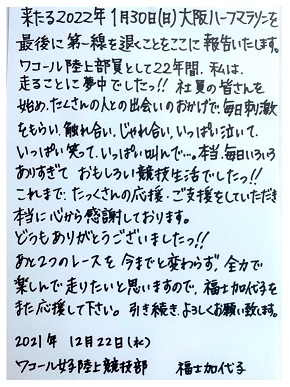 来たる2022年1月30日(日)大阪ハーフマラソンを
最後に第一線を退くことをここに報告いたします。
ワコール陸上部員として22年間、私は、
走ることに夢中でしたっ!! 社員の皆さんを
始め、たくさんの人との出会いのおかげで、毎日刺激
をもらい、触れ合い、じゃれ合い、いっぱい泣いて、
いっぱい笑って、いっぱい叫んで…。本当、毎日いろいろ
ありすぎて おもしろい競技生活でしたっ!!
これまで、たっくさんの応援・ご支援をしていただき
本当に心から感謝しております。
どうもありがとうございましたっ!!
あと2つのレースを 今までと変わらず、全力で
楽しんで走りたいと思いますので、福士加代子を
また応援して下さい。引き続き、よろしくお願い致します。
2021年 12月22日(水)
ワコール女子陸上競技部 福士加代子